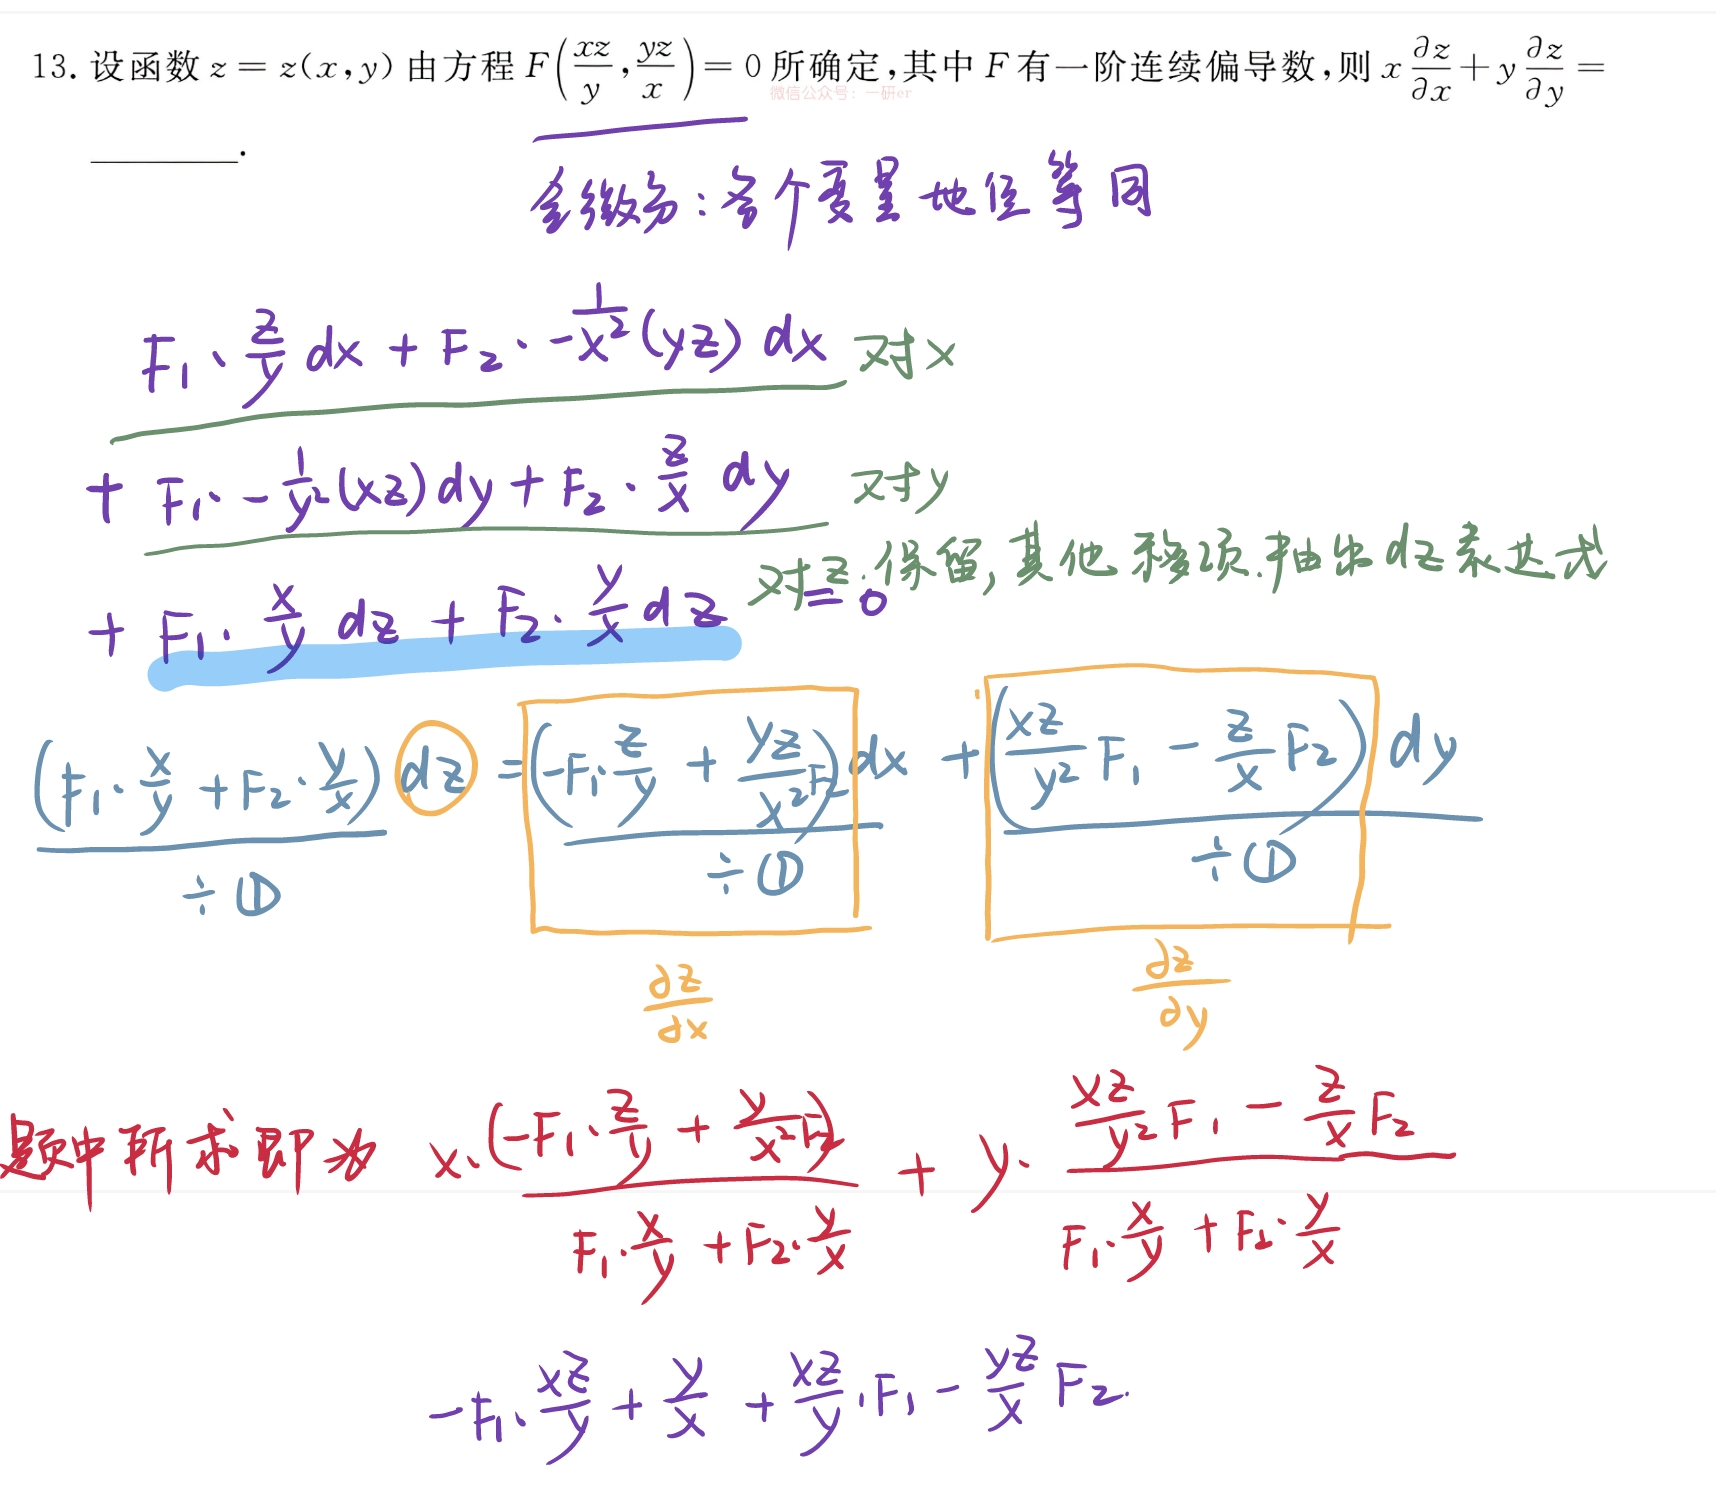 13. 设函数 z = z(x,y) 由方程 F(xz/y, yz/x) = 0 所确定,其中 F 有一阶连续偏导数,则 x ∂z/∂x + y ∂z/∂y =
微信公众号：一研er
________.
全微分：各个变量地位等同
F₁·z/y dx + F₂·-1/x²(yz) dx 对x
+ F₁·-1/y²(xz)dy + F₂·z/x dy 对y
+ F₁·x/y dz + F₂·y/x dz = 0 对z.保留,其他移项.抽出dz表达式
(F₁·x/y + F₂·y/x) dz = (-F₁·z/y + yz/x² F₂) dx + (xz/y² F₁ - z/x F₂) dy
÷① ÷① ÷①
∂z/∂x ∂z/∂y
题中所求即为 x·(-F₁·z/y + y/x² F₂)/(F₁·x/y + F₂·y/x) + y·(xz/y² F₁ - z/x F₂)/(F₁·x/y + F₂·y/x)
-F₁·xz/y + y/x + xz/y·F₁ - yz/x F₂.